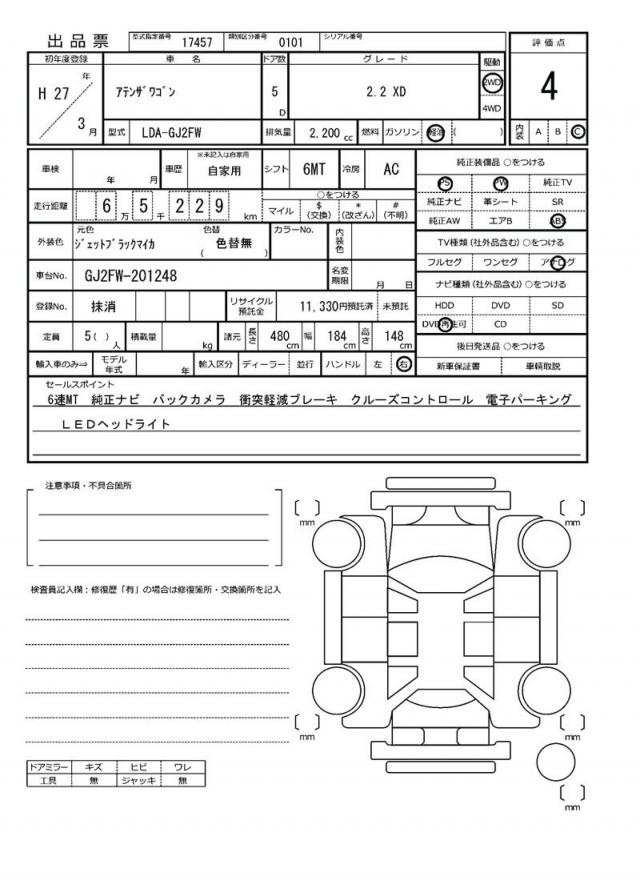 出品票 型式指定番号 17457 類別区分番号 0101 シリアル番号
評価点
4
初年度登録 車名 ドア数 グレード 駆動
H 27 年 3 月 ｱﾃﾝｻﾞﾜｺﾞﾝ 5 D 2.2 XD 2WD 4WD
型式 LDA-GJ2FW 排気量 2,200 cc 燃料 ガソリン 軽油 ( ) 内装 A B C
車検 年 月 車歴 ※未記入は自家用 自家用 シフト 6MT 冷房 AC
走行距離 6 万 5 千 2 2 9 km ○をつける マイル $ (交換) * (改ざん) # (不明)
外装色 元色 ｼﾞｪｯﾄﾌﾞﾗｯｸﾏｲｶ 色替 ( 色替無 ) カラーNo. 内装色
車台No. GJ2FW-201248 名変期限 月 日
登録No. 抹消 リサイクル預託金 11,330円預託済 未預託
定員 5( ) 人 積載量 kg 諸元 長さ 480 cm 幅 184 cm 高さ 148 cm
輸入車のみ⇨ モデル年式 年 輸入区分 ディーラー 並行 ハンドル 左 右
純正装備品 ○をつける
PS PW 純正TV
純正ナビ 革シート SR
純正AW エアB ABS
TV種類(社外品含む) ○をつける
フルセグ ワンセグ アナログ
ナビ種類(社外品含む) ○をつける
HDD DVD SD
DVD再生可 CD
後日発送品 ○をつける
新車保証書 車輌取説
セールスポイント
6連MT 純正ナビ バックカメラ 衝突軽減ブレーキ クルーズコントロール 電子パーキング
ＬＥＤヘッドライト
注意事項・不具合箇所
検査員記入欄：修復歴「有」の場合は修復箇所・交換箇所を記入
[ ] mm
[ ] mm
[ ] mm
[ ] mm
[ ] mm
ドアミラー キズ ヒビ ワレ
工具 無 ジャッキ 無